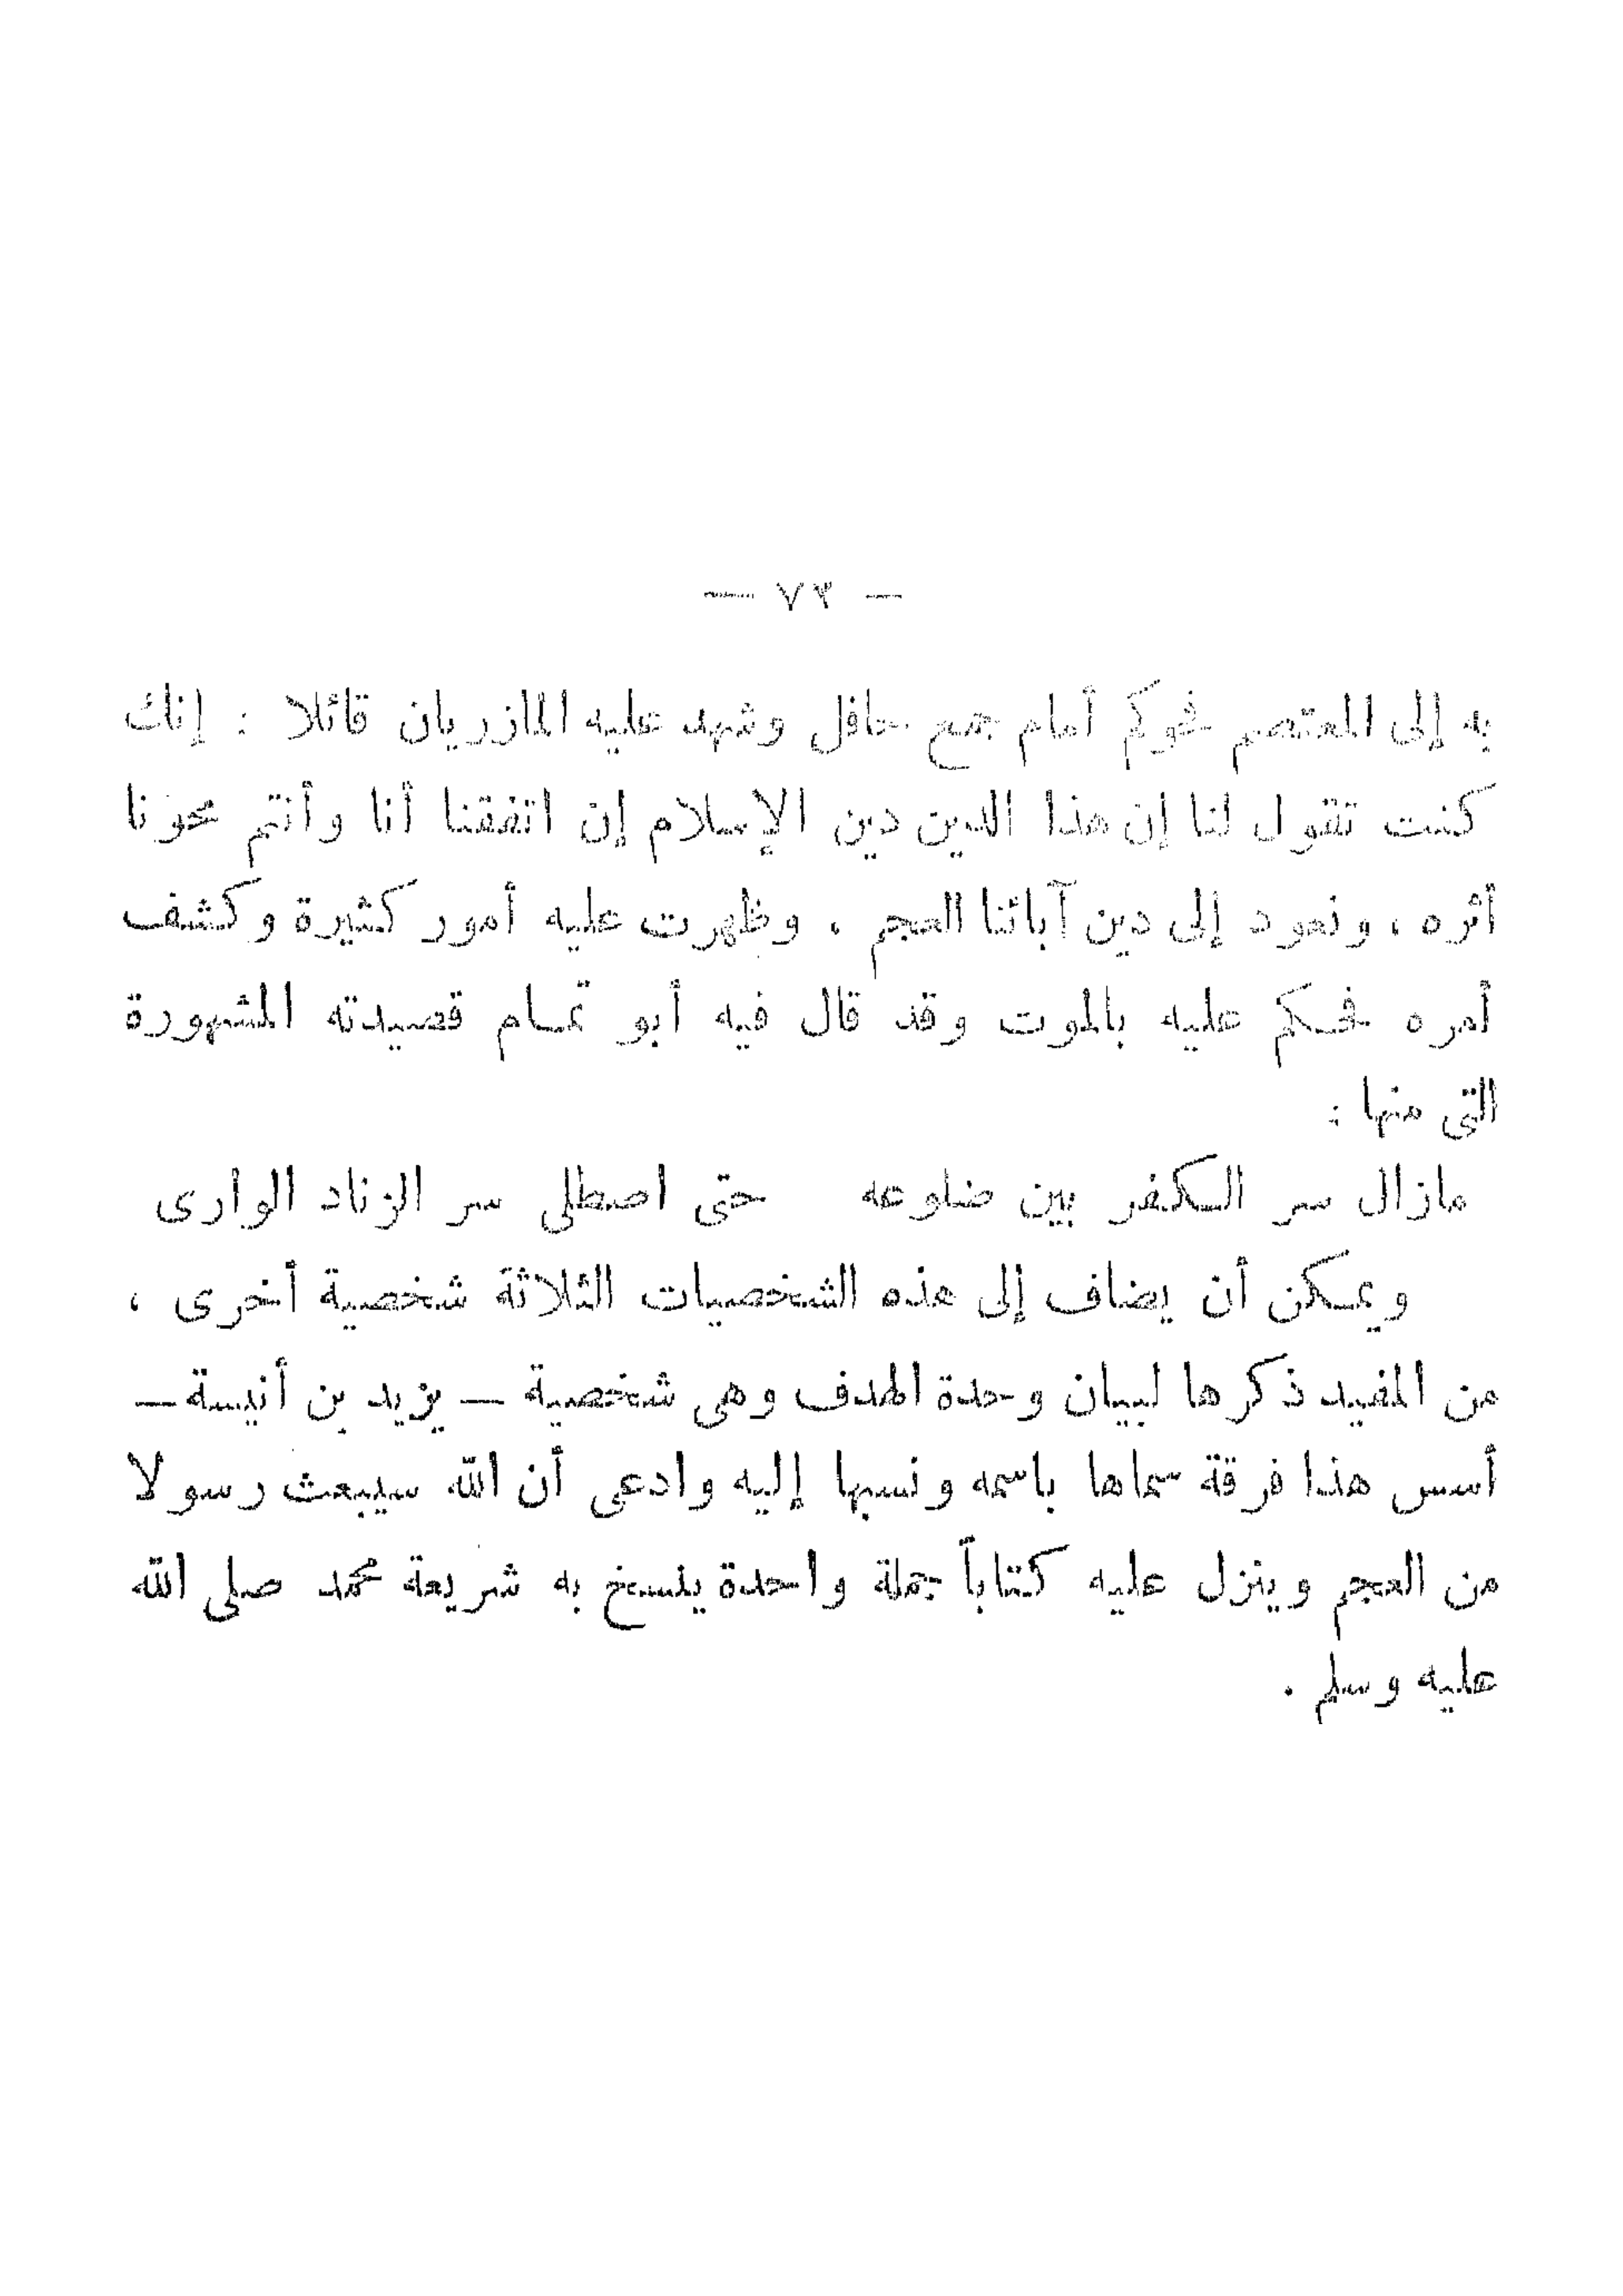 — ٧٣ —
به إلى المعتصم فحوكم أمام جمع حافل وشهد عليه المازريان قائلا : إنك
كنت تقول لنا إن هذا الدين دين الإسلام إن اتفقنا أنا وأنتم محونا
أثره ، ونعود إلى دين آبائنا العجم . وظهرت عليه أمور كثيرة وكشف
أمره فحكم عليه بالموت وقد قال فيه أبو تمام قصيدته المشهورة
التى منها :
مازال سر الكفر بين ضلوعه حتى اصطلى سر الزناد الوارى
ويمكن أن يضاف إلى هذه الشخصيات الثلاثة شخصية أخرى ،
من المفيد ذكرها لبيان وحدة الهدف وهى شخصية — يزيد بن أنيسة —
أسس هذا فرقة سماها باسمه ونسبها إليه وادعى أن الله سيبعث رسولا
من العجم وينزل عليه كتاباً جملة واحدة ينسخ به شريعة محمد صلى الله
عليه وسلم .